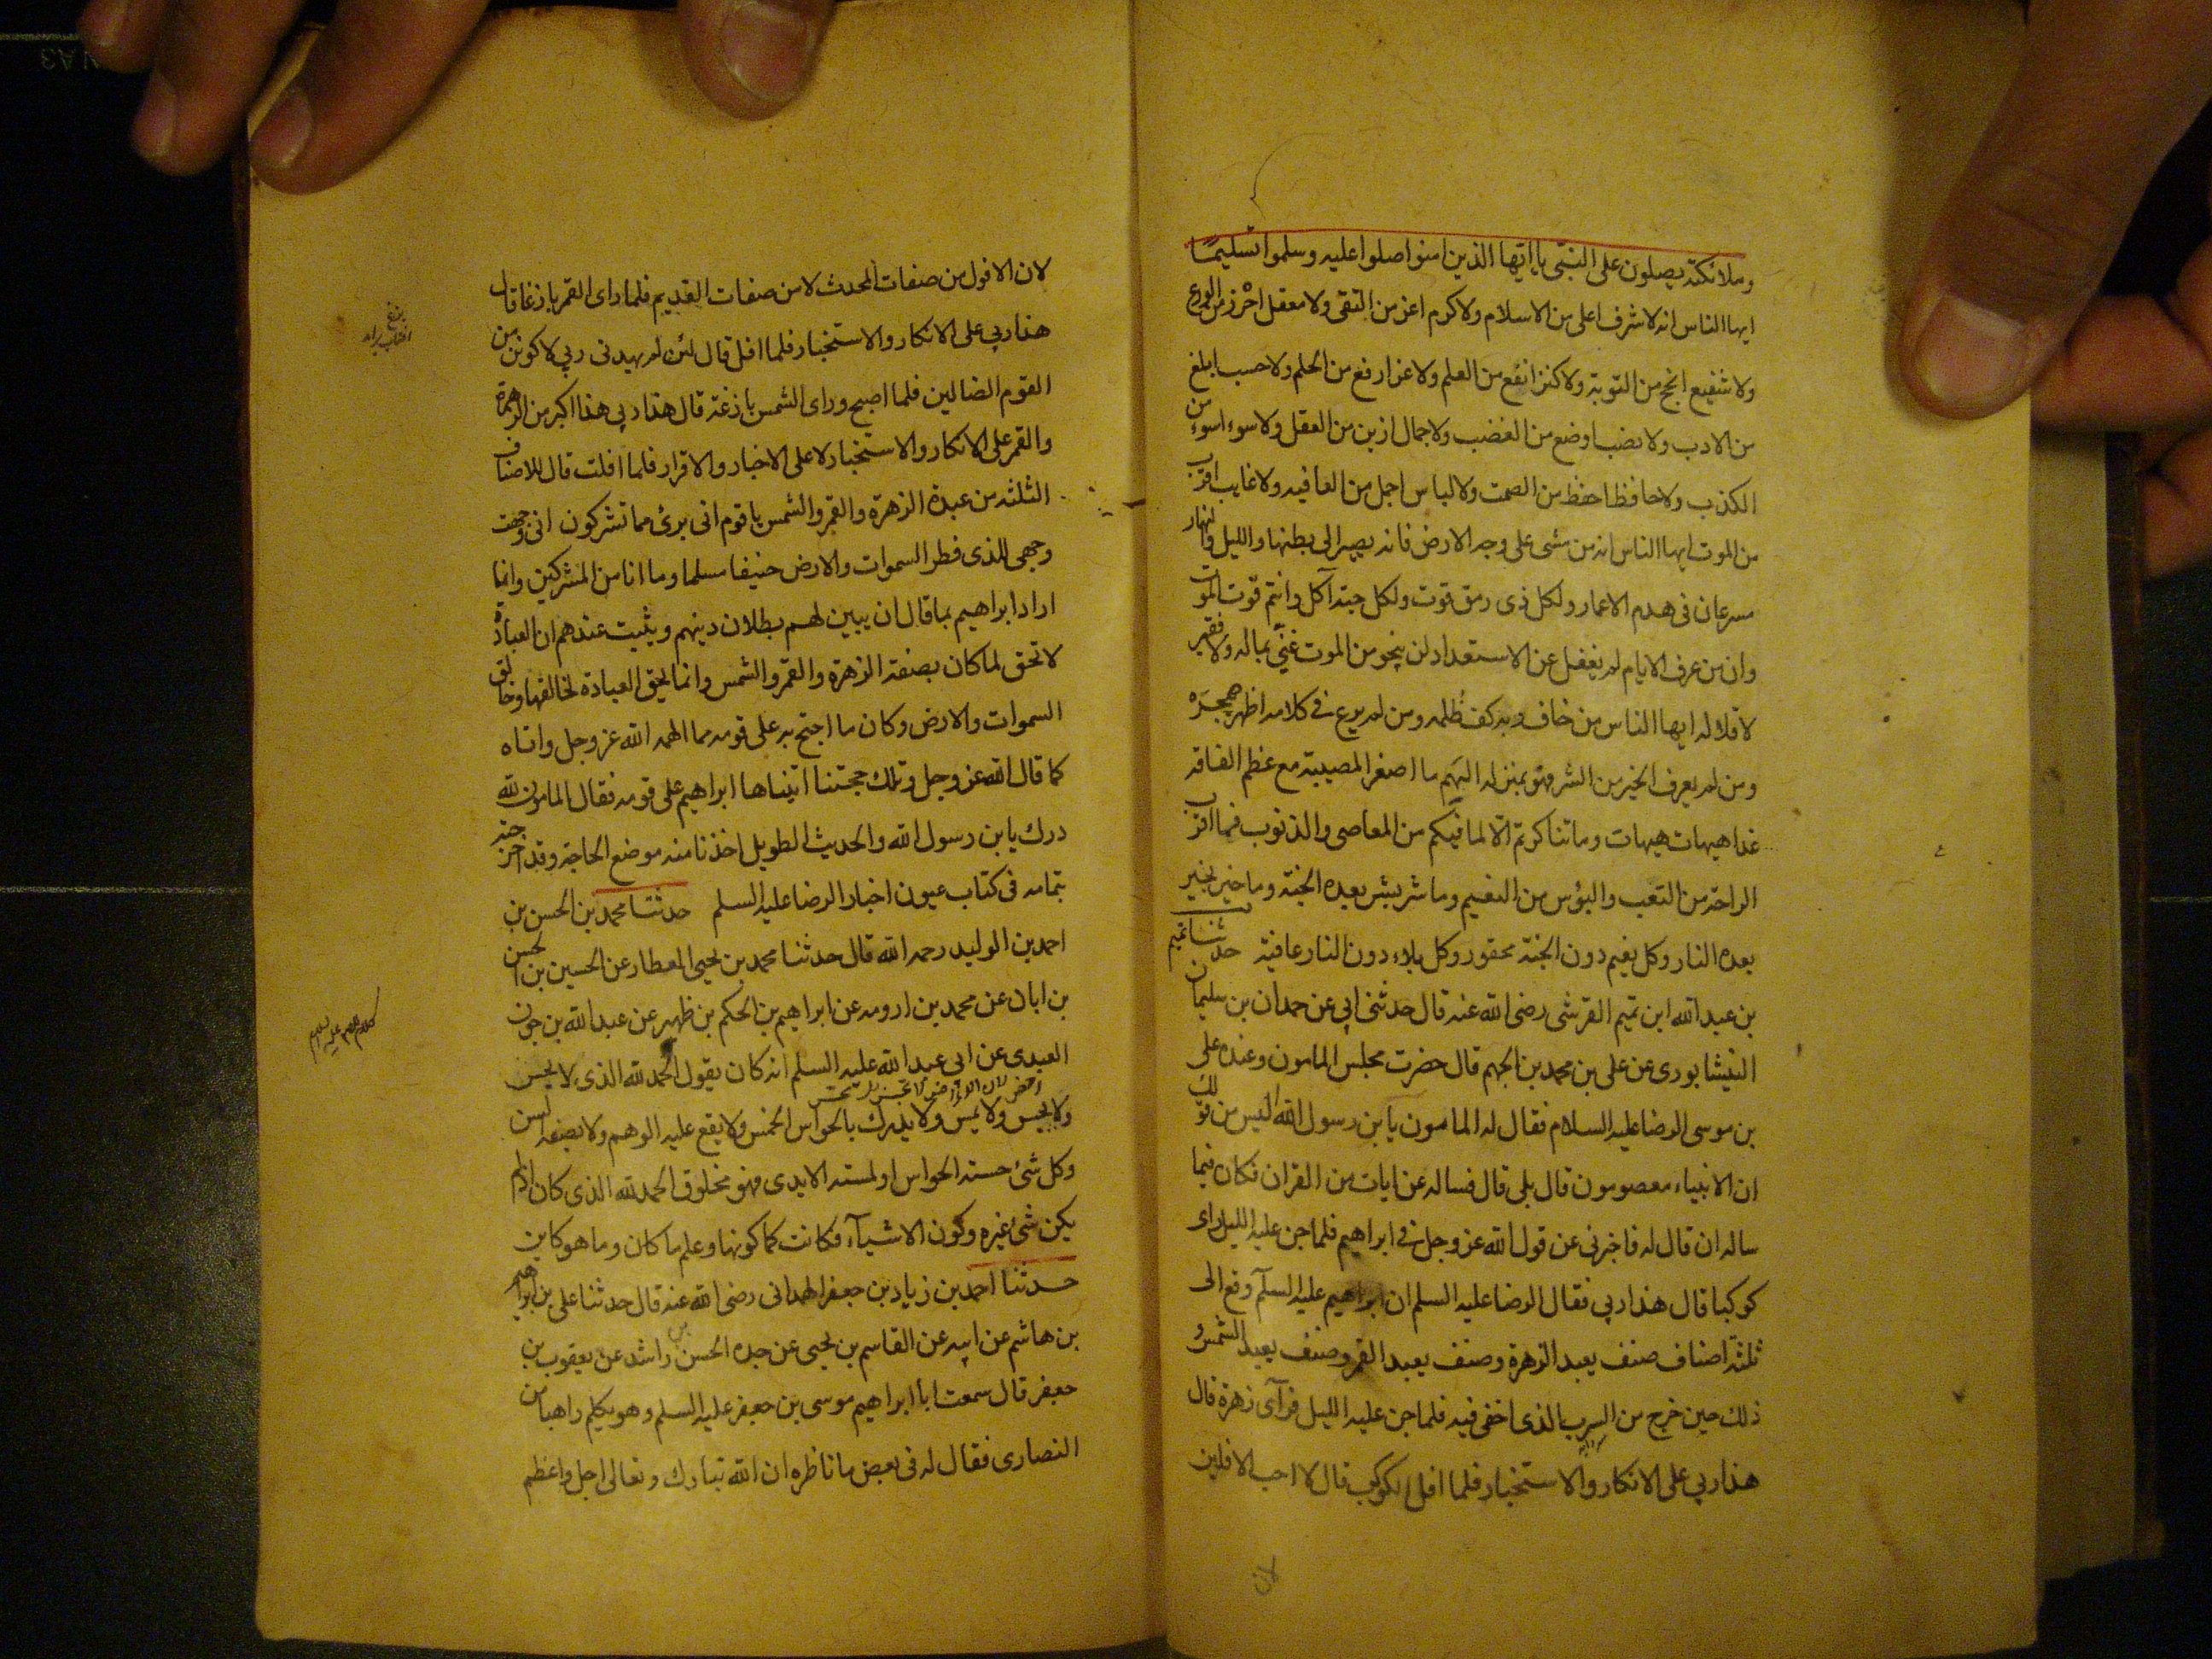 وملائكته يصلون على النبى يا ايها الذين امنوا صلوا عليه وسلموا تسليمًا
ايها الناس انه لا شرف اعلى من الاسلام ولا كرم اعز من التقى ولا معقل احرز من الورع
ولا شفيع انجح من التوبة ولا كنز انفع من العلم ولا عز ارفع من الحلم ولا حسب ابلغ
من الادب ولا نصب اوضع من الغضب ولا جمال ازين من العقل ولا سوء اسوء من
الكذب ولا حافظ احفظ من الصمت ولا لباس اجمل من العافيه ولا غايب اقرب
من الموت ايها الناس انه من مشى على وجه الارض فانه يصير الى بطنها والليل والنهار
مسرعان فى هدم الاعمار ولكل ذى رمق قوت ولكل حبة آكل وانتم قوت الموت
وان من عرف الايام لم يغفل عن الاستعداد لن ينجو من الموت غنىّ بماله ولا فقير
لاقلاله ايها الناس من خاف ربه كف ظلمه ومن لم يرع فى كلامه اظهر هجره
ومن لم يعرف الخير من الشر فهو بمنزلة البهم ما اصغر المصيبة مع عظم الفاقه
غدا هيهات هيهات وما تناكرتم الّا لما فيكم من المعاصى والذنوب فما اقرب
الراحة من التعب والبؤس من النعيم وما شر بشر بعده الجنة وما خير بخير
بعده النار وكل نعيم دون الجنة محقور وكل بلاء دون النار عافية حدثنا تميم
بن عبد الله ابن تميم القرشى رضى الله عنه قال حدثنى ابى عن حمدان بن سليمان
النيشابورى عن على بن محمد بن الجهم قال حضرت مجلس المامون وعنده على
بن موسى الرضا عليه السلام فقال له المامون يا بن رسول الله اليس من قولك
ان الانبياء معصومون قال بلى قال فساله عن ايات من القران فكان فيما
ساله ان قال له فاخبرنى عن قول الله عز وجل فى ابراهيم فلما جن عليه الليل راى
كوكبا قال هذا ربى فقال الرضا عليه السلم ان ابراهيم عليه السلم وقع الى
ثلثة اصناف صنف يعبد الزهرة وصنف يعبد القمر وصنف يعبد الشمس و
ذلك حين خرج من السرب الذى اخفى فيه فلما جن عليه الليل فرآى زهرة قال
هذا ربى على الانكار والاستخبار فلما افل الكوكب قال لا احب الافلين
لان
لان الافول من صفات المحدث لا من صفات القديم فلما راى القمر بازغا قال
هذا ربى على الانكار والاستخبار فلما افل قال لئن لم يهدنى ربى لاكونن من
القوم الضالين فلما اصبح وراى الشمس بازغة قال هذا ربى هذا اكبر من الزهرة
والقمر على الانكار والاستخبار لا على الاخبار والاقرار فلما افلت قال للاصناف
الثلثة من عبدة الزهرة والقمر والشمس يا قوم انى برئ مما تشركون انى وجهت
وجهى للذى فطر السموات والارض حنيفا مسلما وما انا من المشركين وانما
اراد ابراهيم بما قال ان يبين لهم بطلان دينهم ويثبت عندهم ان العبادة
لا تحق لما كان بصفة الزهرة والقمر والشمس وانما يحق العبادة لخالقها وخالق
السموات والارض وكان ما احتج به على قومه مما الهمه الله عز وجل واتاه
كما قال الله عز وجل وتلك حجتنا اتيناها ابراهيم على قومه فقال المامون لله
درك يا بن رسول الله والحديث الطويل اخذنا منه موضع الحاجة وقد اخرجته
بتمامه فى كتاب عيون اخبار الرضا عليه السلم حدثنا محمد بن الحسن بن
احمد بن الوليد رحمه الله قال حدثنا محمد بن يحيى العطار عن الحسين بن الحسن
بن ابان عن محمد بن ارومه عن ابراهيم بن الحكم بن ظهير عن عبد الله بن جون
العبدى عن ابى عبد الله عليه السلم انه كان يقول الحمد لله الذى لا يحس
ولا يجس ولا يمس ولا يدرك بالحواس الخمس ولا يقع عليه الوهم ولا تصفه السن
وكل شئ حسته الحواس او لمسته الايدى فهو مخلوق الحمد لله الذى كان اذ لم
يكن شئ غيره وكون الاشيآء فكانت كما كونها وعلم ما كان وما هو كاين
حدثنا احمد بن زياد بن جعفر الهمدانى رضى الله عنه قال حدثنا على بن ابراهيم
بن هاشم عن ابيه عن القاسم بن يحيى عن جده الحسن بن راشد عن يعقوب بن
جعفر قال سمعت ابا ابراهيم موسى بن جعفر عليه السلم وهو يكلم راهبا من
النصارى فقال له فى بعض ما ناظره ان الله تبارك وتعالى اجل واعظم